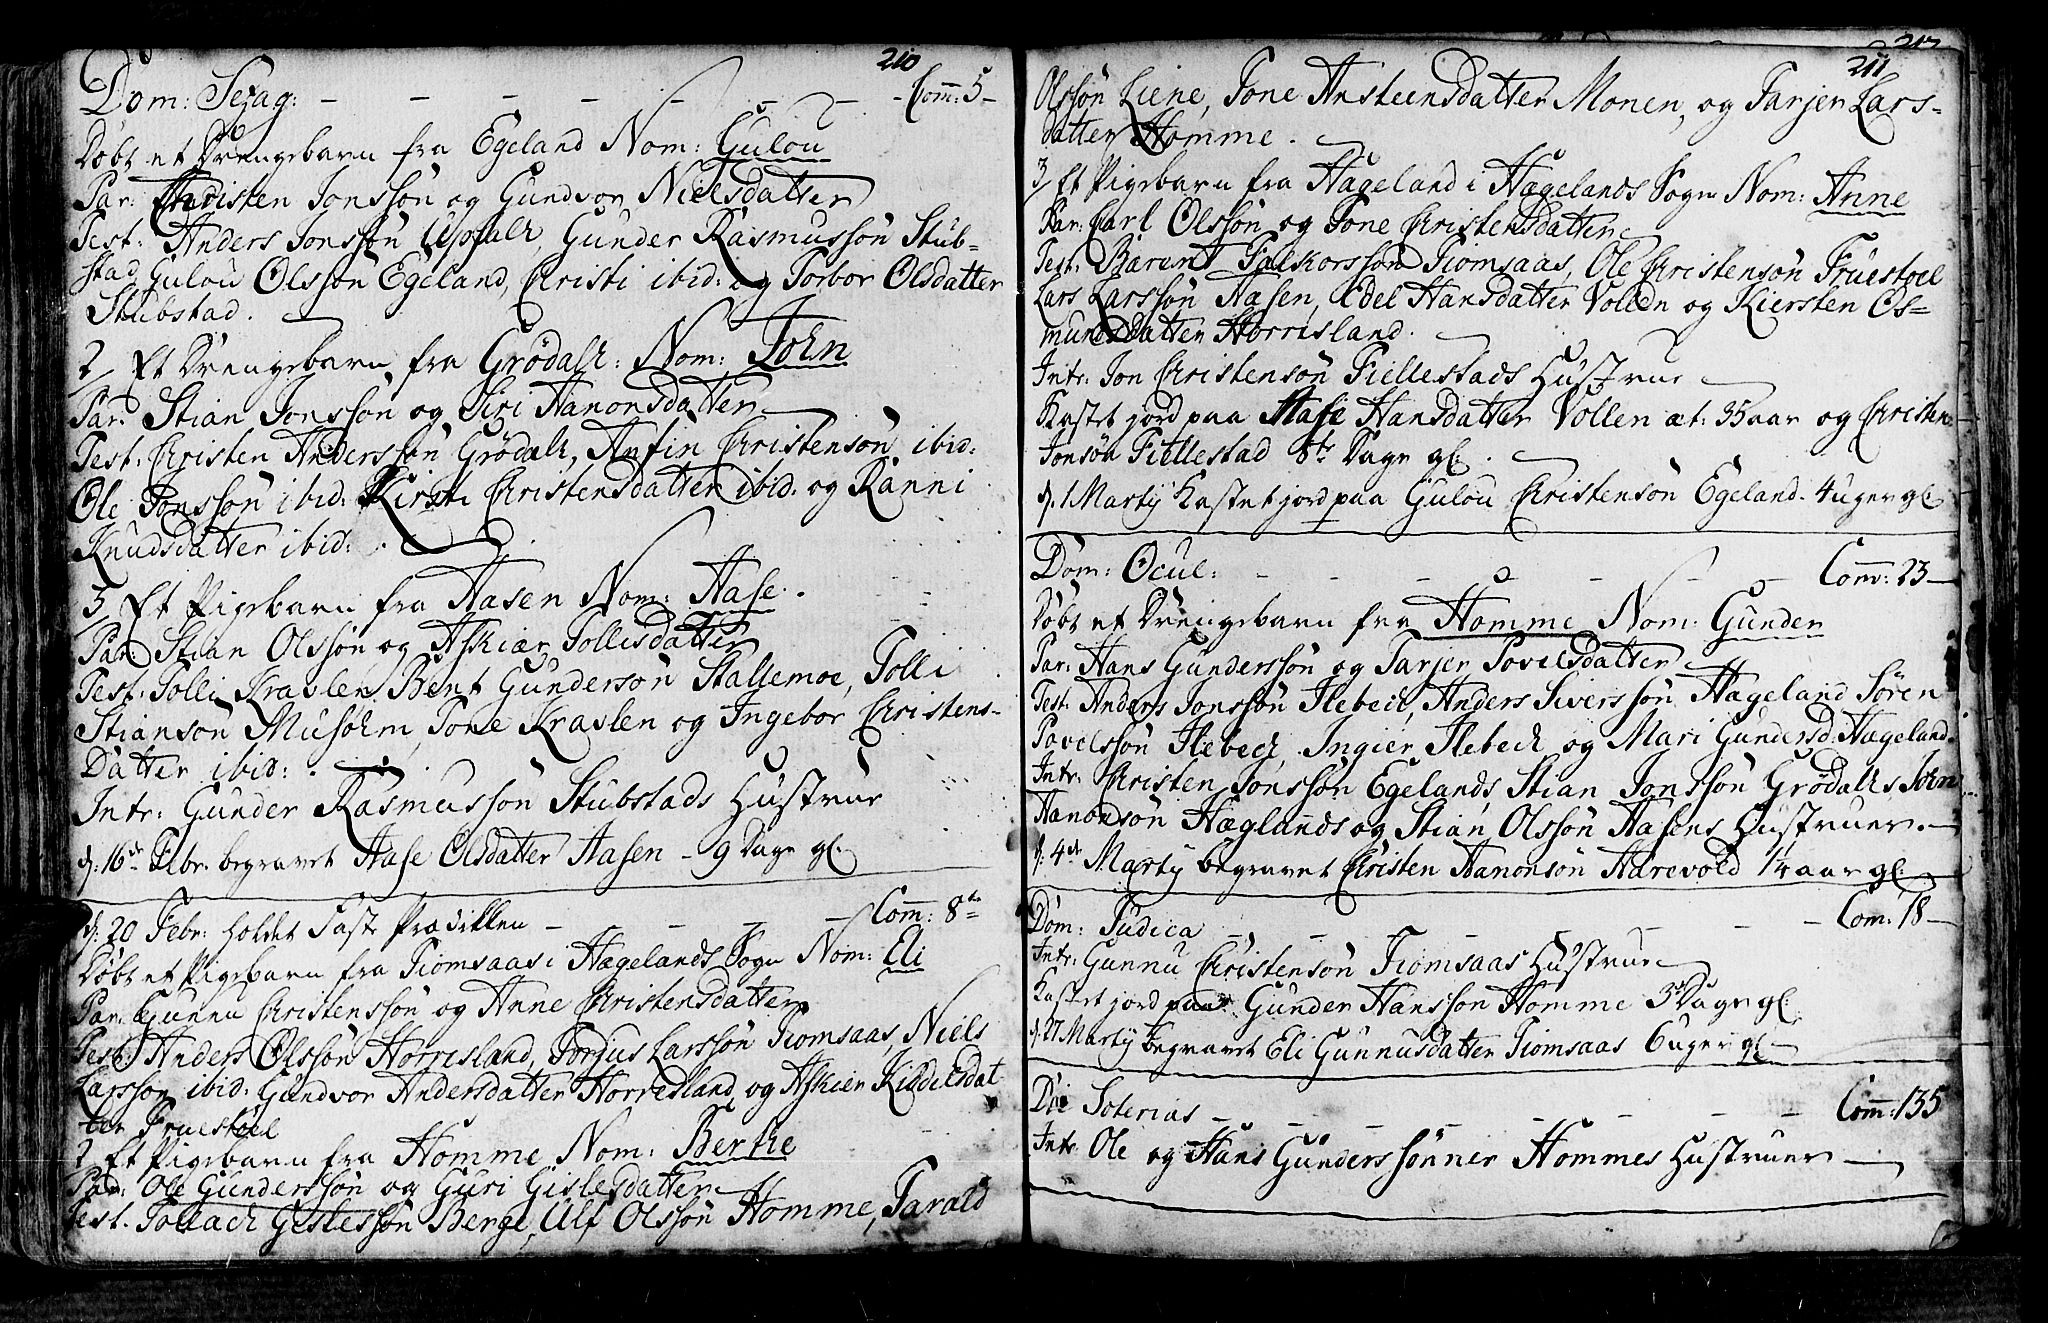 210
Dom: Sexag: - - - - - - - Comm: 5 -
Døbt et Drengebarn fra Egeland Nom: Gulou
Par: Christen Jonssøn og Gundvor Nielsdatter
Test: Anders Jonssøn Upsalh, Gunder Rasmussøn Stub-
stad, Gulou Olssøn Egeland, Christi ibid: og Torbor Olsdatter
Stubstad.
2 Et Drengebarn fra Grødalh: Nom: John
Par: Stian Jonssøn og Siri Hanonsdatter
Test: Christen Anderssøn Grødalh, Anfin Christensøn ibid:
Ole Jonssøn ibid: Kirsti Christensdatter ibid: og Ranni
Knudsdatter ibid:
3 Et Pigebarn fra Aasen Nom: Aase.
Par: Stian Olssøn og Askier Tollisdatter
Test: Tolli Kraslen, Bent Gundersøn Stallemoe, Tolli
Stiansøn Musolm, Tone Kraslen og Ingebor Christens-
Datter ibid:
Intr: Gunder Rasmussøn Stubstads Hustrue
d: 16de Febr: begravet Aase Olsdatter Aasen - 9 Dage gl.
d: 20 Febr: holdet Faste Prædikken - - - - Comm: 8te
Døbt et Pigebarn fra Tiomsaas i Hægelands Sogn Nom: Eli
Par: Gunnu Christenssøn og Anne Christensdatter
Test: Anders Olssøn Horrisland, Torjus Larssøn Tiomsaas, Niels
Larssøn ibid: Gundvor Andersdatter Horresland, og Askier Kiddelsdat
ter Fruestøel
2 Et Pigebarn fra Homme Nom: Berthe
Par: Ole Gunderssøn og Guri Gislesdatter
Test. Tollach Geslessøn Berge, Ulf Olssøn Homme, Tarald
211
Olssøn Liene, Tone Ansteensdatter Monen, og Tarjer Lars-
datter Homme.
3 Et Pigebarn fra Hageland i Hægelands Sogn Nom: Anne
Par: Carl Olssøn og Tone Christensdatter
Test: Barent Falkorssøn Tiomsaas, Ole Christensøn Fruestøel
Lars Larssøn Aasen, Edel Hansdatter Vollen og Kiersten Os-
mundsdatter Horrisland.
Intr: Jon Christensøn Fiellestads Hustrue
Kastet jord paa Aase Hansdatter Vollen æt: 35 aar og Christen
Jonsøn Fiellestad 8te Dage gl.
d. 1 Martij Kastet jord paa Gulou Christensøn Egeland. 4 uger gl.
Dom: Ocul: - - - - - - - Comm: 23 -
Døbt et Drengebarn fra Homme Nom: Gunder
Par: Hans Gunderssøn og Tarjer Povelsdatter
Test: Anders Jonssøn Ilebech, Anders Siverssøn Hageland, Søren
Povelssøn Ilebech, Ingier Ilebech og Mari Gundersd. Hægeland.
Intr: Christen Jonssøn Egelands, Stian Jonssøn Grødalhs, John
Hanondsøn Hæglands og Stian Olssøn Aasens Hustruer.
d: 4de Martij begravet Christen Hanonsøn Aarevold 14 aar gl.
Dom: Judica - - - - - - Com: 18 -
Intr: Gunnu Christensøn Tiomsaas Hustrue
Kastet jord paa Gunder Hanssøn Homme 3de Dage gl.
d. 27 Martij begravet Eli Gunnusdatter Tiomsaas 6 uger gl.
Die Soterias - - - - - - Comm: 135
Intr: Ole og Hans Gunderssønner Hommes Hustruer